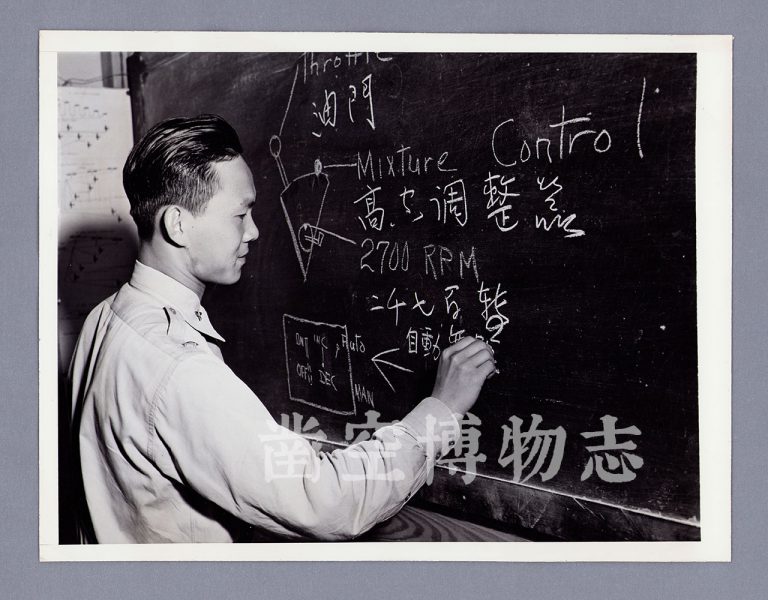 Throttle
油門
Mixture Control
高空调整器
2700 RPM
二千七百转
自動
Auto
OFF DEC
MAN
凿空博物志